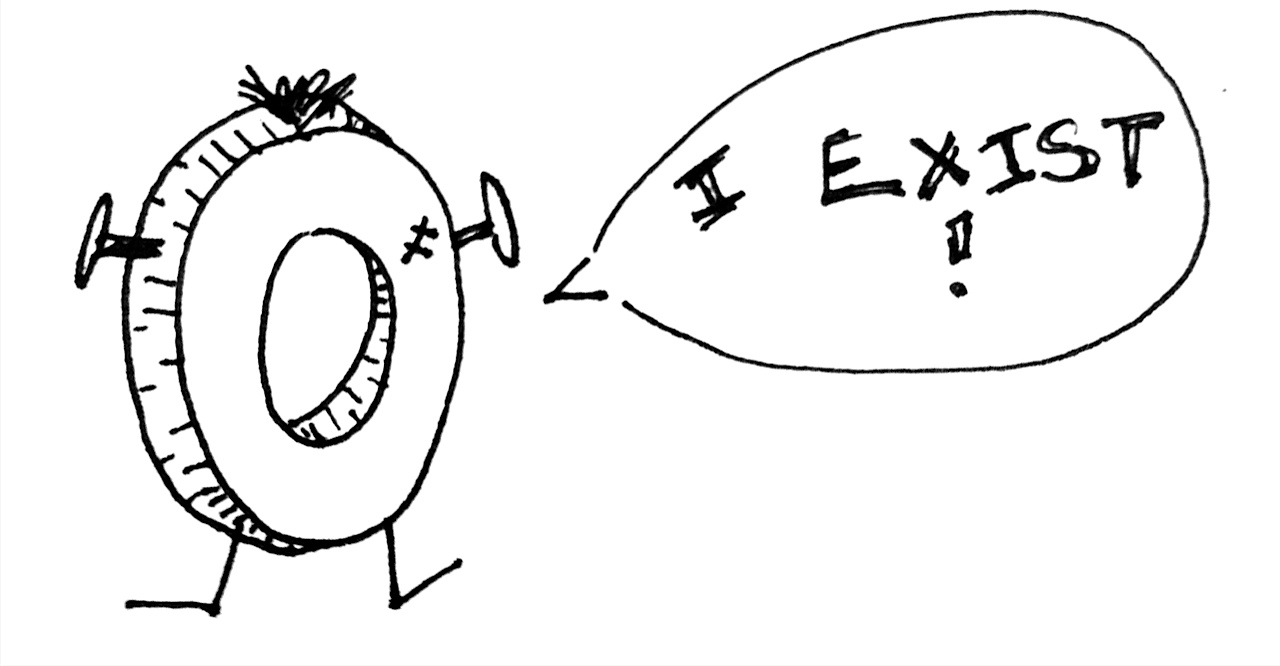 I EXIST
!